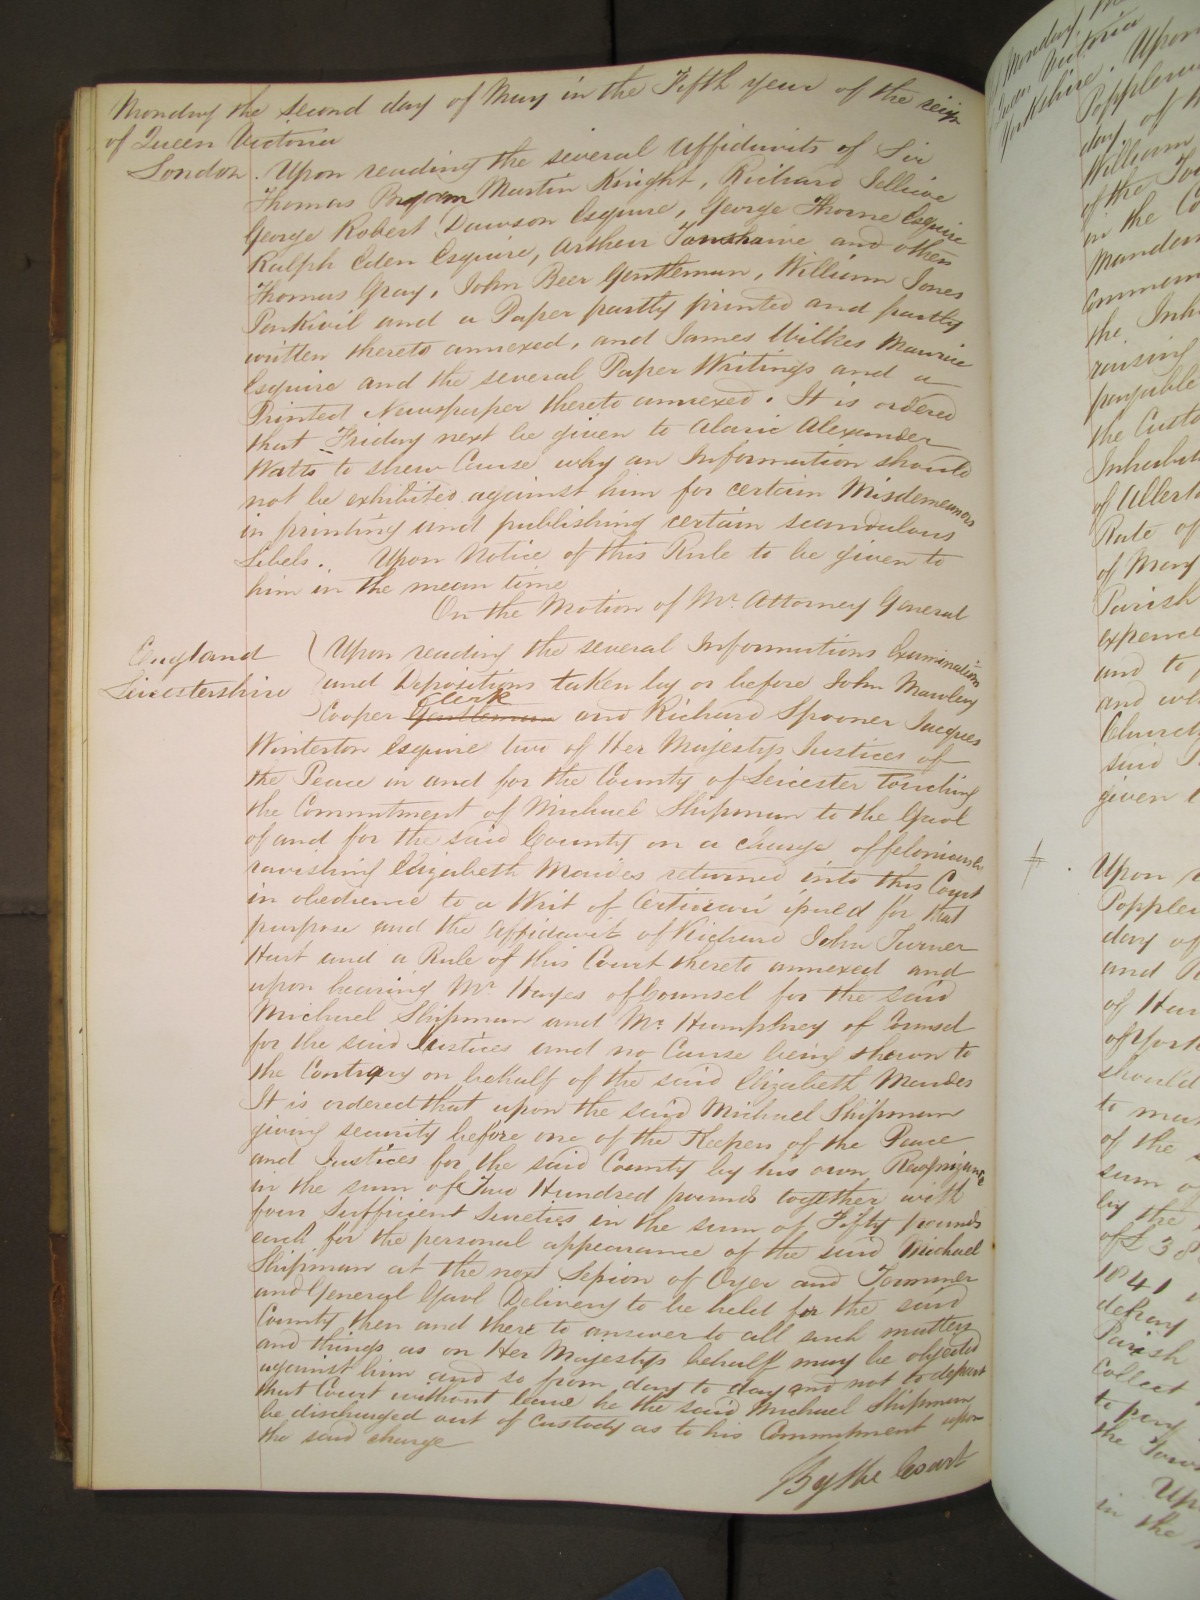 Monday the second day of May in the Fifth year of the reign
of Queen Victoria
London. Upon reading the several Affidavits of Sir
Thomas Martin Knight, Richard Jellicoe
George Robert Dawson Esquire, George Thorne Esquire
Ralph Eden Esquire, Arthur and others
Thomas Gray, John Beer Gentleman, William Jones
and a Paper partly printed and partly
written thereto annexed, and James Wilkes Maurice
Esquire and the several Paper Writings and a
Printed Newspaper thereto annexed. It is ordered
that Friday next be given to Alaric Alexander
Watts to shew Cause why an Information should
not be exhibited against him for certain Misdemeanors
in printing and publishing certain scandulous
Libels. Upon Notice of this Rule to be given to
him in the mean time
On the Motion of Mr. Attorney General
England
Leicestershire
Upon reading the several Informations Examinations
and Depositions taken by or before John Mawley
Clerk
Cooper Gentleman and Richard Spooner Jacques
Winterton Esquire two of Her Majestys Justices of
the Peace in and for the County of Leicester touching
the Commitment of Michael Shipman to the Gaol
of and for the said County on a charge of feloniously
ravishing Elizabeth Mawdes returned into this Court
in obedience to a Writ of Certiorari issued for that
purpose and the Affidavit of Richard John Turner
Hurt and a Rule of this Court thereto annexed and
upon hearing Mr. Hayes of Counsel for the said
Michael Shipman and Mr. Humphrey of Counsel
for the said Justices and no Cause being shewn to
the Contrary on behalf of the said Elizabeth Mawdes
It is ordered that upon the said Michael Shipman
giving security before one of the Keepers of the Peace
and Justices for the said County by his own Recognizance
in the sum of Two Hundred pounds together with
four sufficient Sureties in the sum of Fifty pounds
each for the personal appearance of the said Michael
Shipman at the next Session of Oyer and Terminer
and General Gaol Delivery to be held for the said
County then and there to answer to all such matters
and things as on Her Majestys behalf may be objected
against him and so from day to day and not to depart
that Court without leave he the said Michael Shipman
be discharged out of custody as to his Commitment upon
the said charge
By the Court
Monday
Queen Victoria
Yorkshire. Upon
day of
William
of the
in the
the
raising
payable
the
of
Rate of
of Mary
Parish
expence
and to
and
said
given
Upon
day of
and
of
of York
should
to
of the
sum of
by the
of £38
1841
defray
Parish
Collect
to pay
the
Up
in the